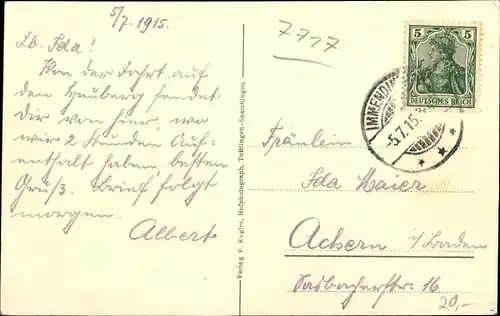 5/7.1915.
Lb. Ida!
Von der Fahrt auf
den Heuberg sendet
Dir von hier, wo
wir 2 Stunden Auf-
enthalt haben, besten
Gruß. Brief folgt
morgen.
Albert
Verlag E. Kugler, Hofphotograph, Tuttlingen-Spaichingen
7717
5 5
DEUTSCHES REICH
IMMENDIN
-5.7.15.
Fräulein
Ida Maier
Achern i/Baden
Sasbacherstr. 16
20,-